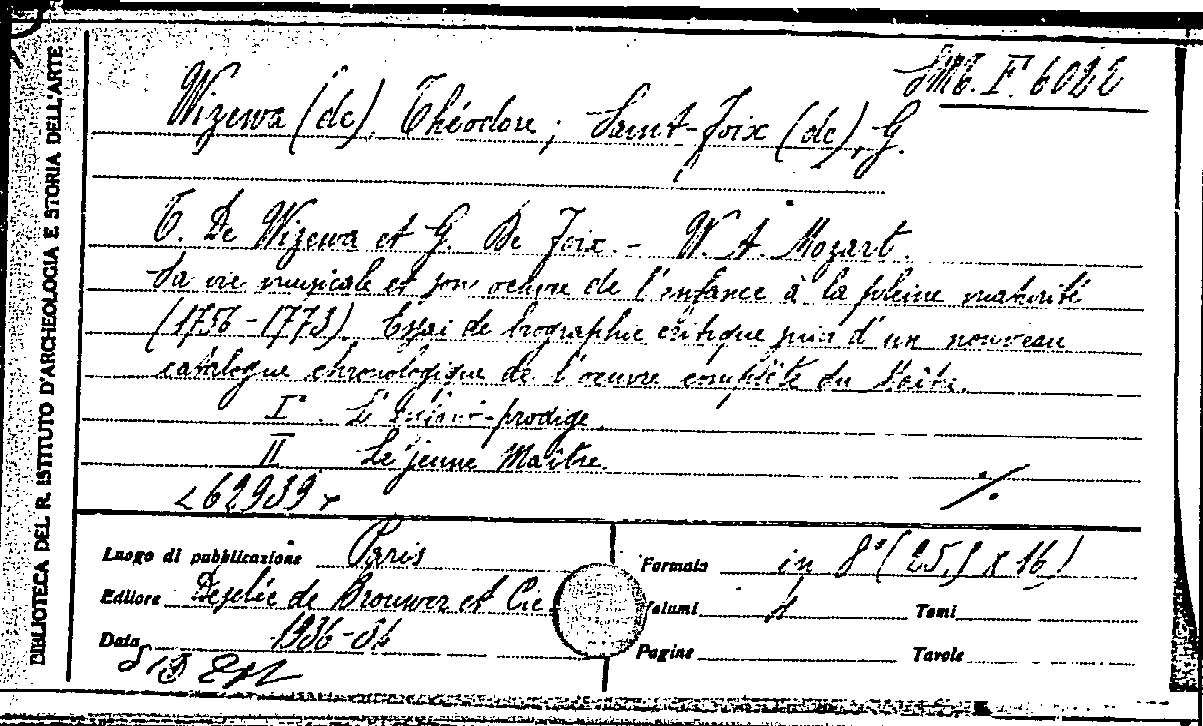 BIBLIOTECA DEL R. ISTITUTO D'ARCHEOLOGIA E STORIA DELL'ARTE
Wizewa (de), Théodore; Saint-Foix (de), G.
T. De Wizewa et G. De Foix. - W. A. Mozart.
Sa vie musicale et son oeuvre de l'enfance à la pleine maturité
(1756-1773). Essai de biographie critique suivi d'un nouveau
catalogue chronologique de l'oeuvre complète du Maître.
I. L'enfant-prodige.
II Le jeune Maître.
<62939>
./.
Luogo di pubblicazione Paris
Formato in 8° (25,5 x 16)
Editore Desclée de Brouwer et Cie
Volumi
Tomi
Data 1936-
Pagine
Tavole